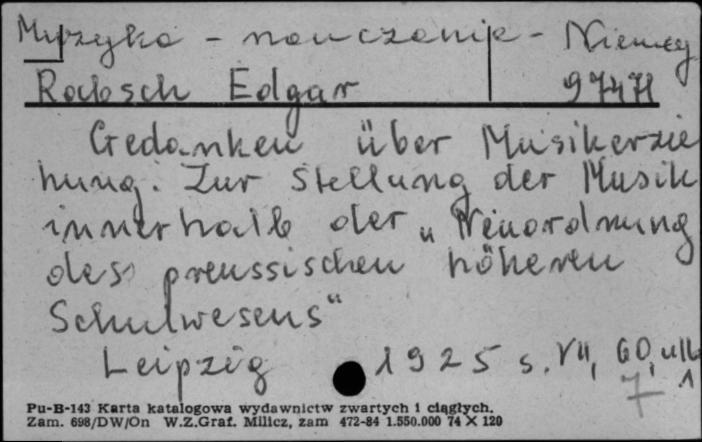 Muzyka - nauczanie - Niemcy
Rabsch Edgar 97471
Gedanken über Musikerzie
hung. Zur Stellung der Musik
innerhalb der „Neuordnung
des preussischen höheren
Schulwesens“
Leipzig 1925 s. VII, 60,
7 1
Pu-B-143 Karta katalogowa wydawnictw zwartych i ciągłych.
Zam. 698/DW/On W.Z.Graf. Milicz, zam 472-84 1.550.000 74 X 120